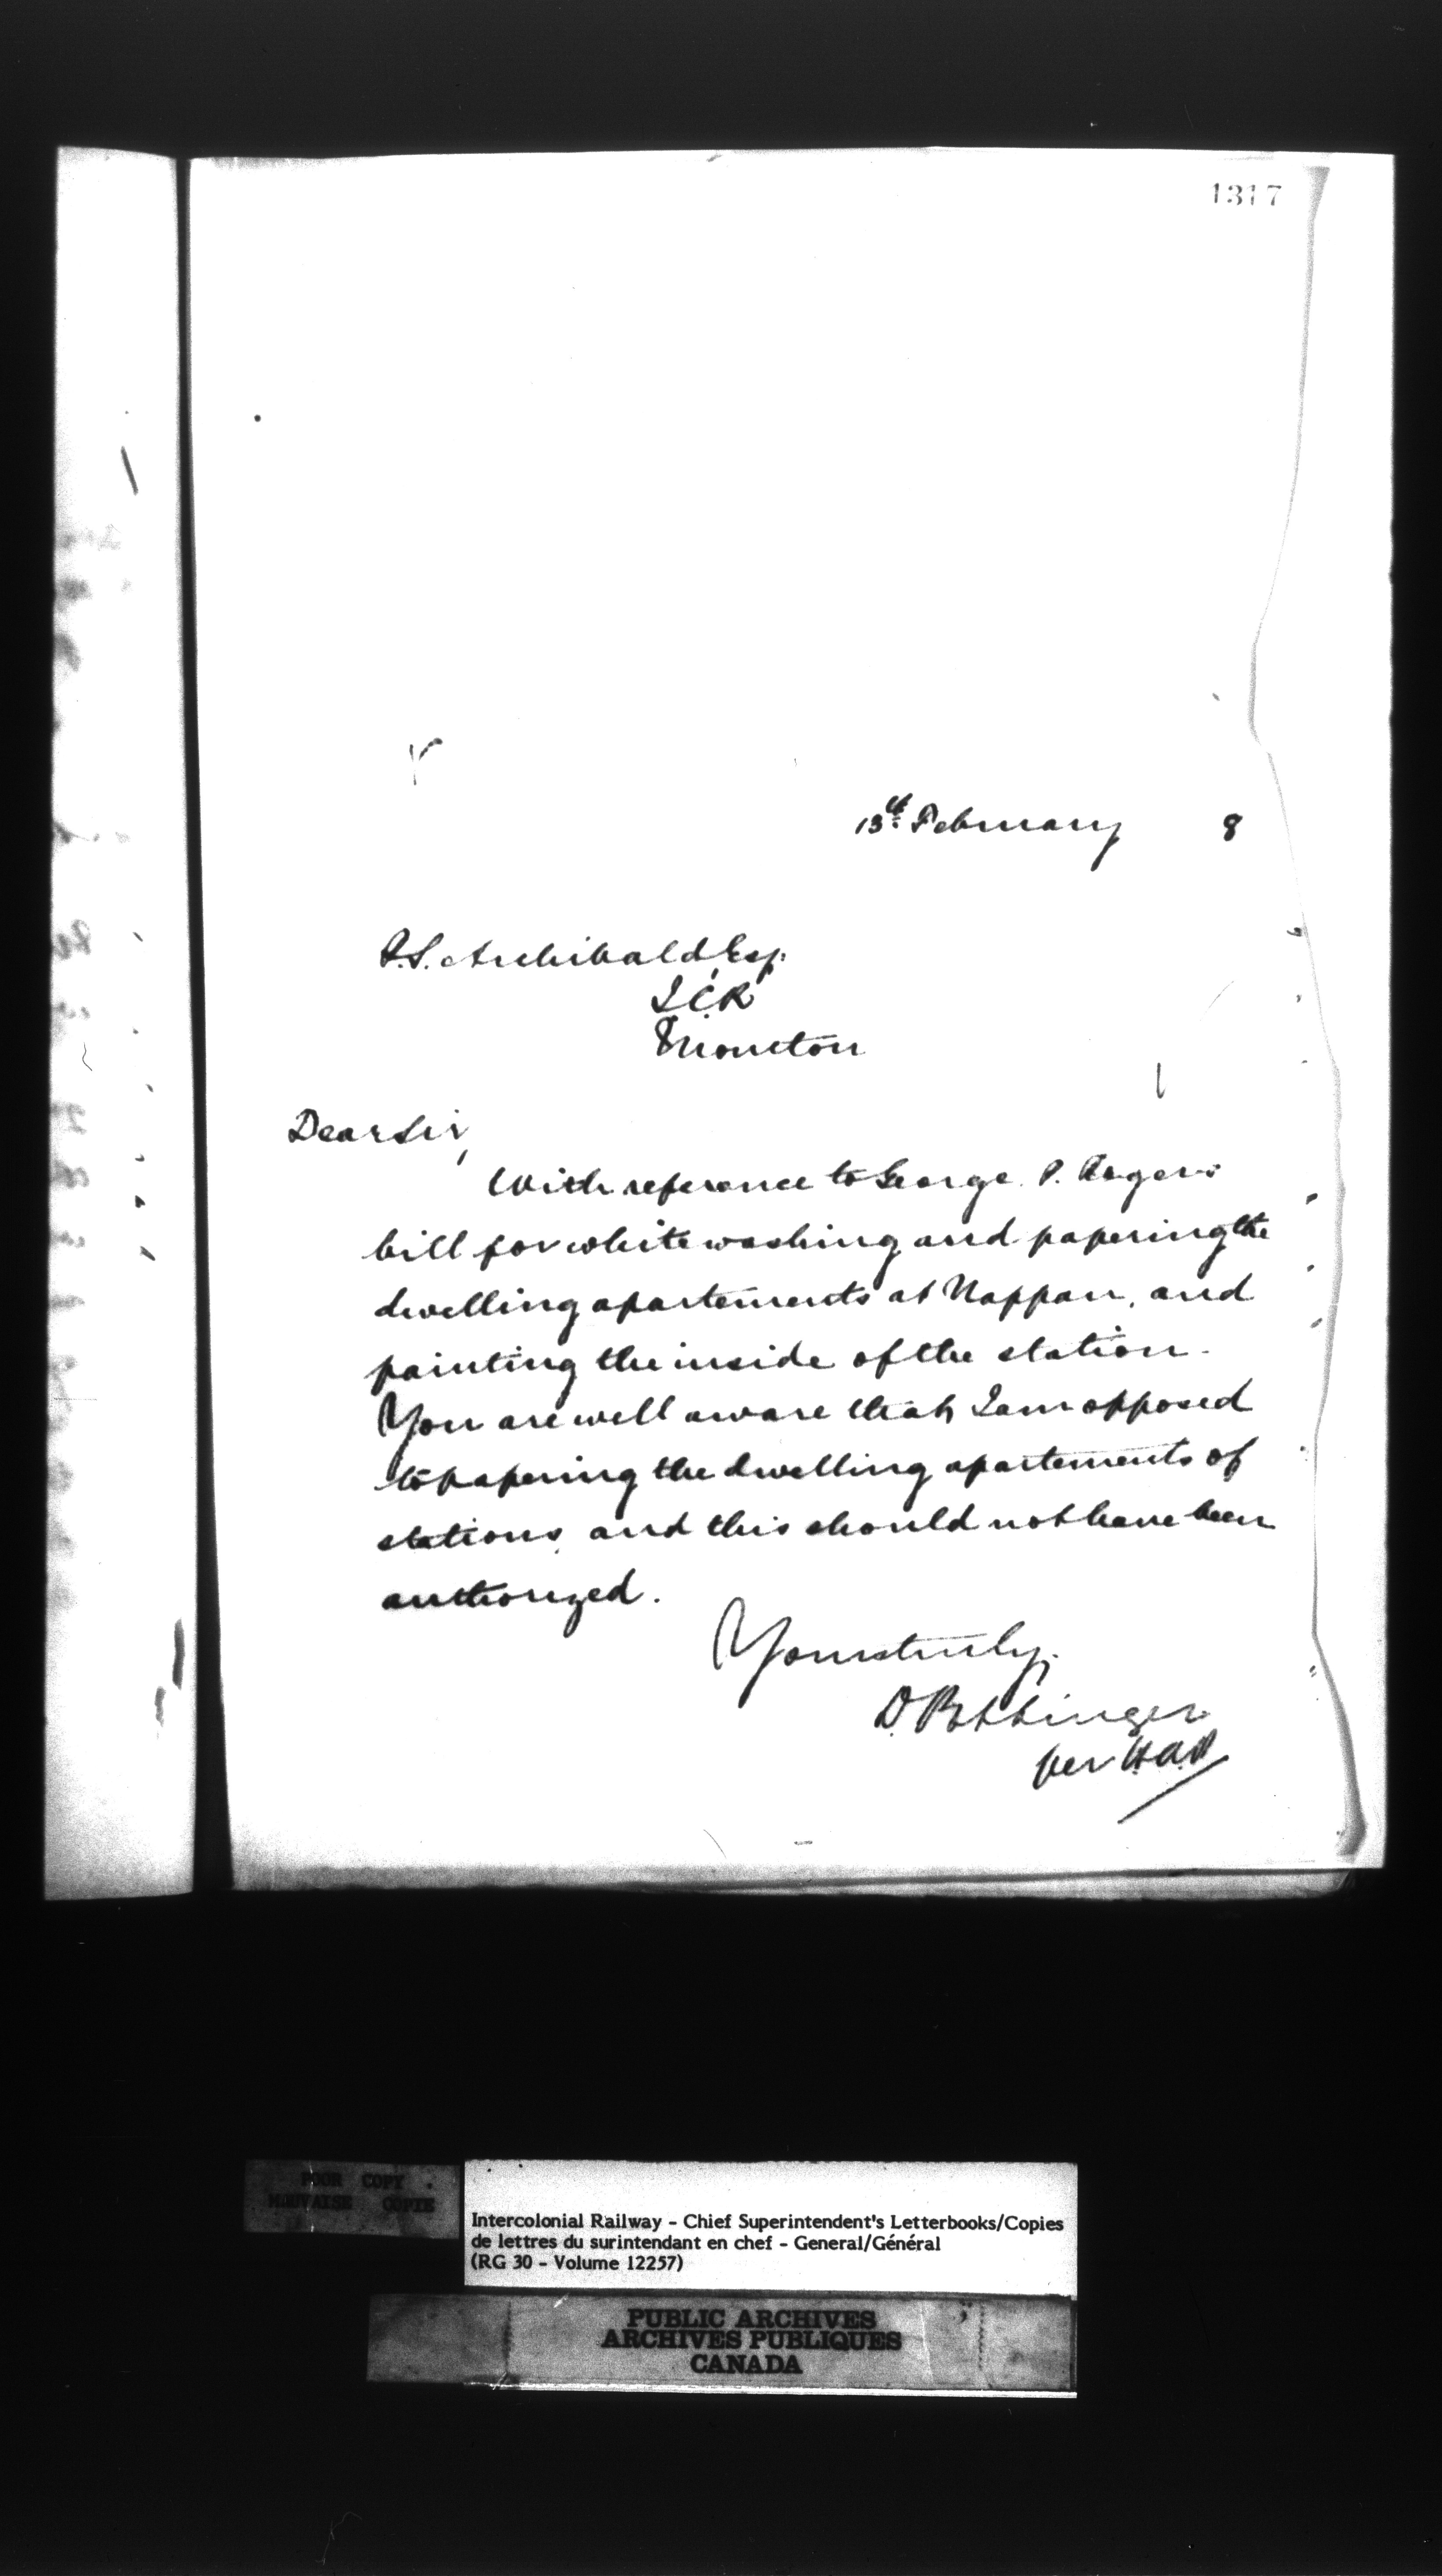 1317
13th February 8
P.S. Archibald, Esq.
I.C.R
Moncton
Dear Sir,
With reference to George P. Rogers
bill for white washing and papering the
dwelling apartements at Nappan, and
painting the inside of the station.
You are well aware that I am opposed
to papering the dwelling apartements of
stations, and this should not have been
authorized.
Yours truly,
D. Pottinger
per
POOR COPY
MAUVAISE COPIE
Intercolonial Railway - Chief Superintendent's Letterbooks/Copies
de lettres du surintendant en chef - General/Général
(RG 30 - Volume 12257)
PUBLIC ARCHIVES
ARCHIVES PUBLIQUES
CANADA